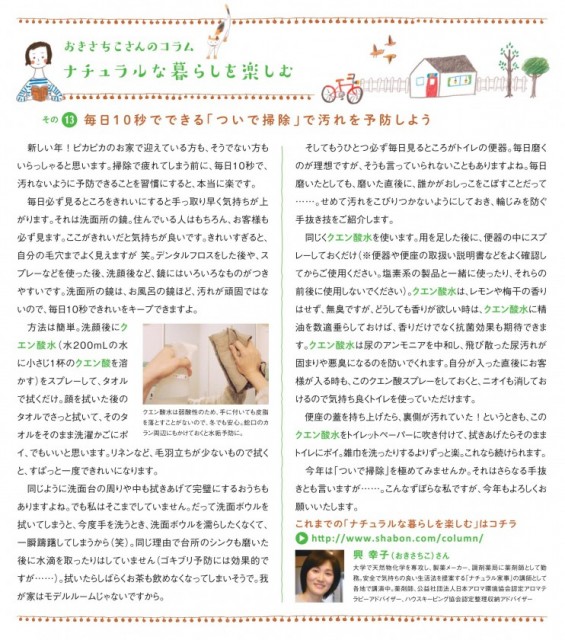 おきさちこさんのコラム
ナチュラルな暮らしを楽しむ
その 13 毎日10秒でできる「ついで掃除」で汚れを予防しよう
新しい年！ピカピカのお家で迎えている方も、そうでない方も
いらっしゃると思います。掃除で疲れてしまう前に、毎日10秒で、
汚れないように予防できることを習慣にすると、本当に楽です。
毎日必ず見るところをきれいにすると手っ取り早く気持ちが上
がります。それは洗面所の鏡。住んでいる人はもちろん、お客様も
必ず見ます。ここがきれいだと気持ちが良いです。きれいすぎると、
自分の毛穴までよく見えますが 笑。デンタルフロスをした後や、ス
プレーなどを使った後、洗顔後など、鏡にはいろいろなものがつき
やすいです。洗面所の鏡は、お風呂の鏡ほど、汚れが頑固ではな
いので、毎日10秒できれいをキープできますよ。
方法は簡単。洗顔後にク
エン酸水（水200mLの水
に小さじ1杯のクエン酸を溶
かす）をスプレーして、タオル
で拭くだけ。顔を拭いた後の
タオルでさっと拭いて、そのタ
オルをそのまま洗濯かごにポ
イ、でもいいと思います。リネンなど、毛羽立ちが少ないもので拭く
と、すばっと一度できれいになります。
クエン酸水は弱酸性のため、手に付いても皮脂
を落とすことがないので、冬でも安心。蛇口のカ
ラン周辺にもかけておくと水垢予防に。
同じように洗面台の周りや中も拭きあげて完璧にするおうちも
ありますよね。でも私はそこまでしていません。だって洗面ボウルを
拭いてしまうと、今度手を洗うとき、洗面ボウルを濡らしたくなくて、
一瞬躊躇してしまうから（笑）。同じ理由で台所のシンクも磨いた
後に水滴を取ったりはしていません（ゴキブリ予防には効果的で
すが……）。拭いたらしばらくお茶も飲めなくなってしまいそうで。我
が家はモデルルームじゃないですから。
そしてもうひとつ必ず毎日見るところがトイレの便器。毎日磨く
のが理想ですが、そうも言っていられないこともありますよね。毎日
磨いたとしても、磨いた直後に、誰かがおしっこをこぼすことだって
……。せめて汚れをこびりつかないようにしておき、輪じみを防ぐ
手抜き技をご紹介します。
同じくクエン酸水を使います。用を足した後に、便器の中にスプ
レーしておくだけ（※便器や便座の取扱い説明書などをよく確認し
てからご使用ください。塩素系の製品と一緒に使ったり、それらの
前後に使用しないでください）。クエン酸水は、レモンや梅干の香り
はせず、無臭ですが、どうしても香りが欲しい時は、クエン酸水に精
油を数滴垂らしておけば、香りだけでなく抗菌効果も期待できま
す。クエン酸水は尿のアンモニアを中和し、飛び散った尿汚れが
固まりや悪臭になるのを防いでくれます。自分が入った直後にお客
様が入る時も、このクエン酸スプレーをしておくと、ニオイも消してお
けるので気持ち良くトイレを使っていただけます。
便座の蓋を持ち上げたら、裏側が汚れていた！というときも、この
クエン酸水をトイレットペーパーに吹き付けて、拭きあげたらそのまま
トイレにポイ。雑巾を洗ったりするよりずっと楽。これなら続けられます。
今年は「ついで掃除」を極めてみませんか。それはさらなる手抜
きとも言いますが……。こんなずぼらな私ですが、今年もよろしくお
願いいたします。
これまでの「ナチュラルな暮らしを楽しむ」はコチラ
http://www.shabon.com/column/
興 幸子（おきさちこ）さん
大学で天然物化学を専攻し、製薬メーカー、調剤薬局に薬剤師として勤
務。安全で気持ちの良い生活法を提案する「ナチュラル家事」の講師として
各地で講演中。薬剤師、公益社団法人日本アロマ環境協会認定アロマテ
ラピーアドバイザー、ハウスキーピング協会認定整理収納アドバイザー